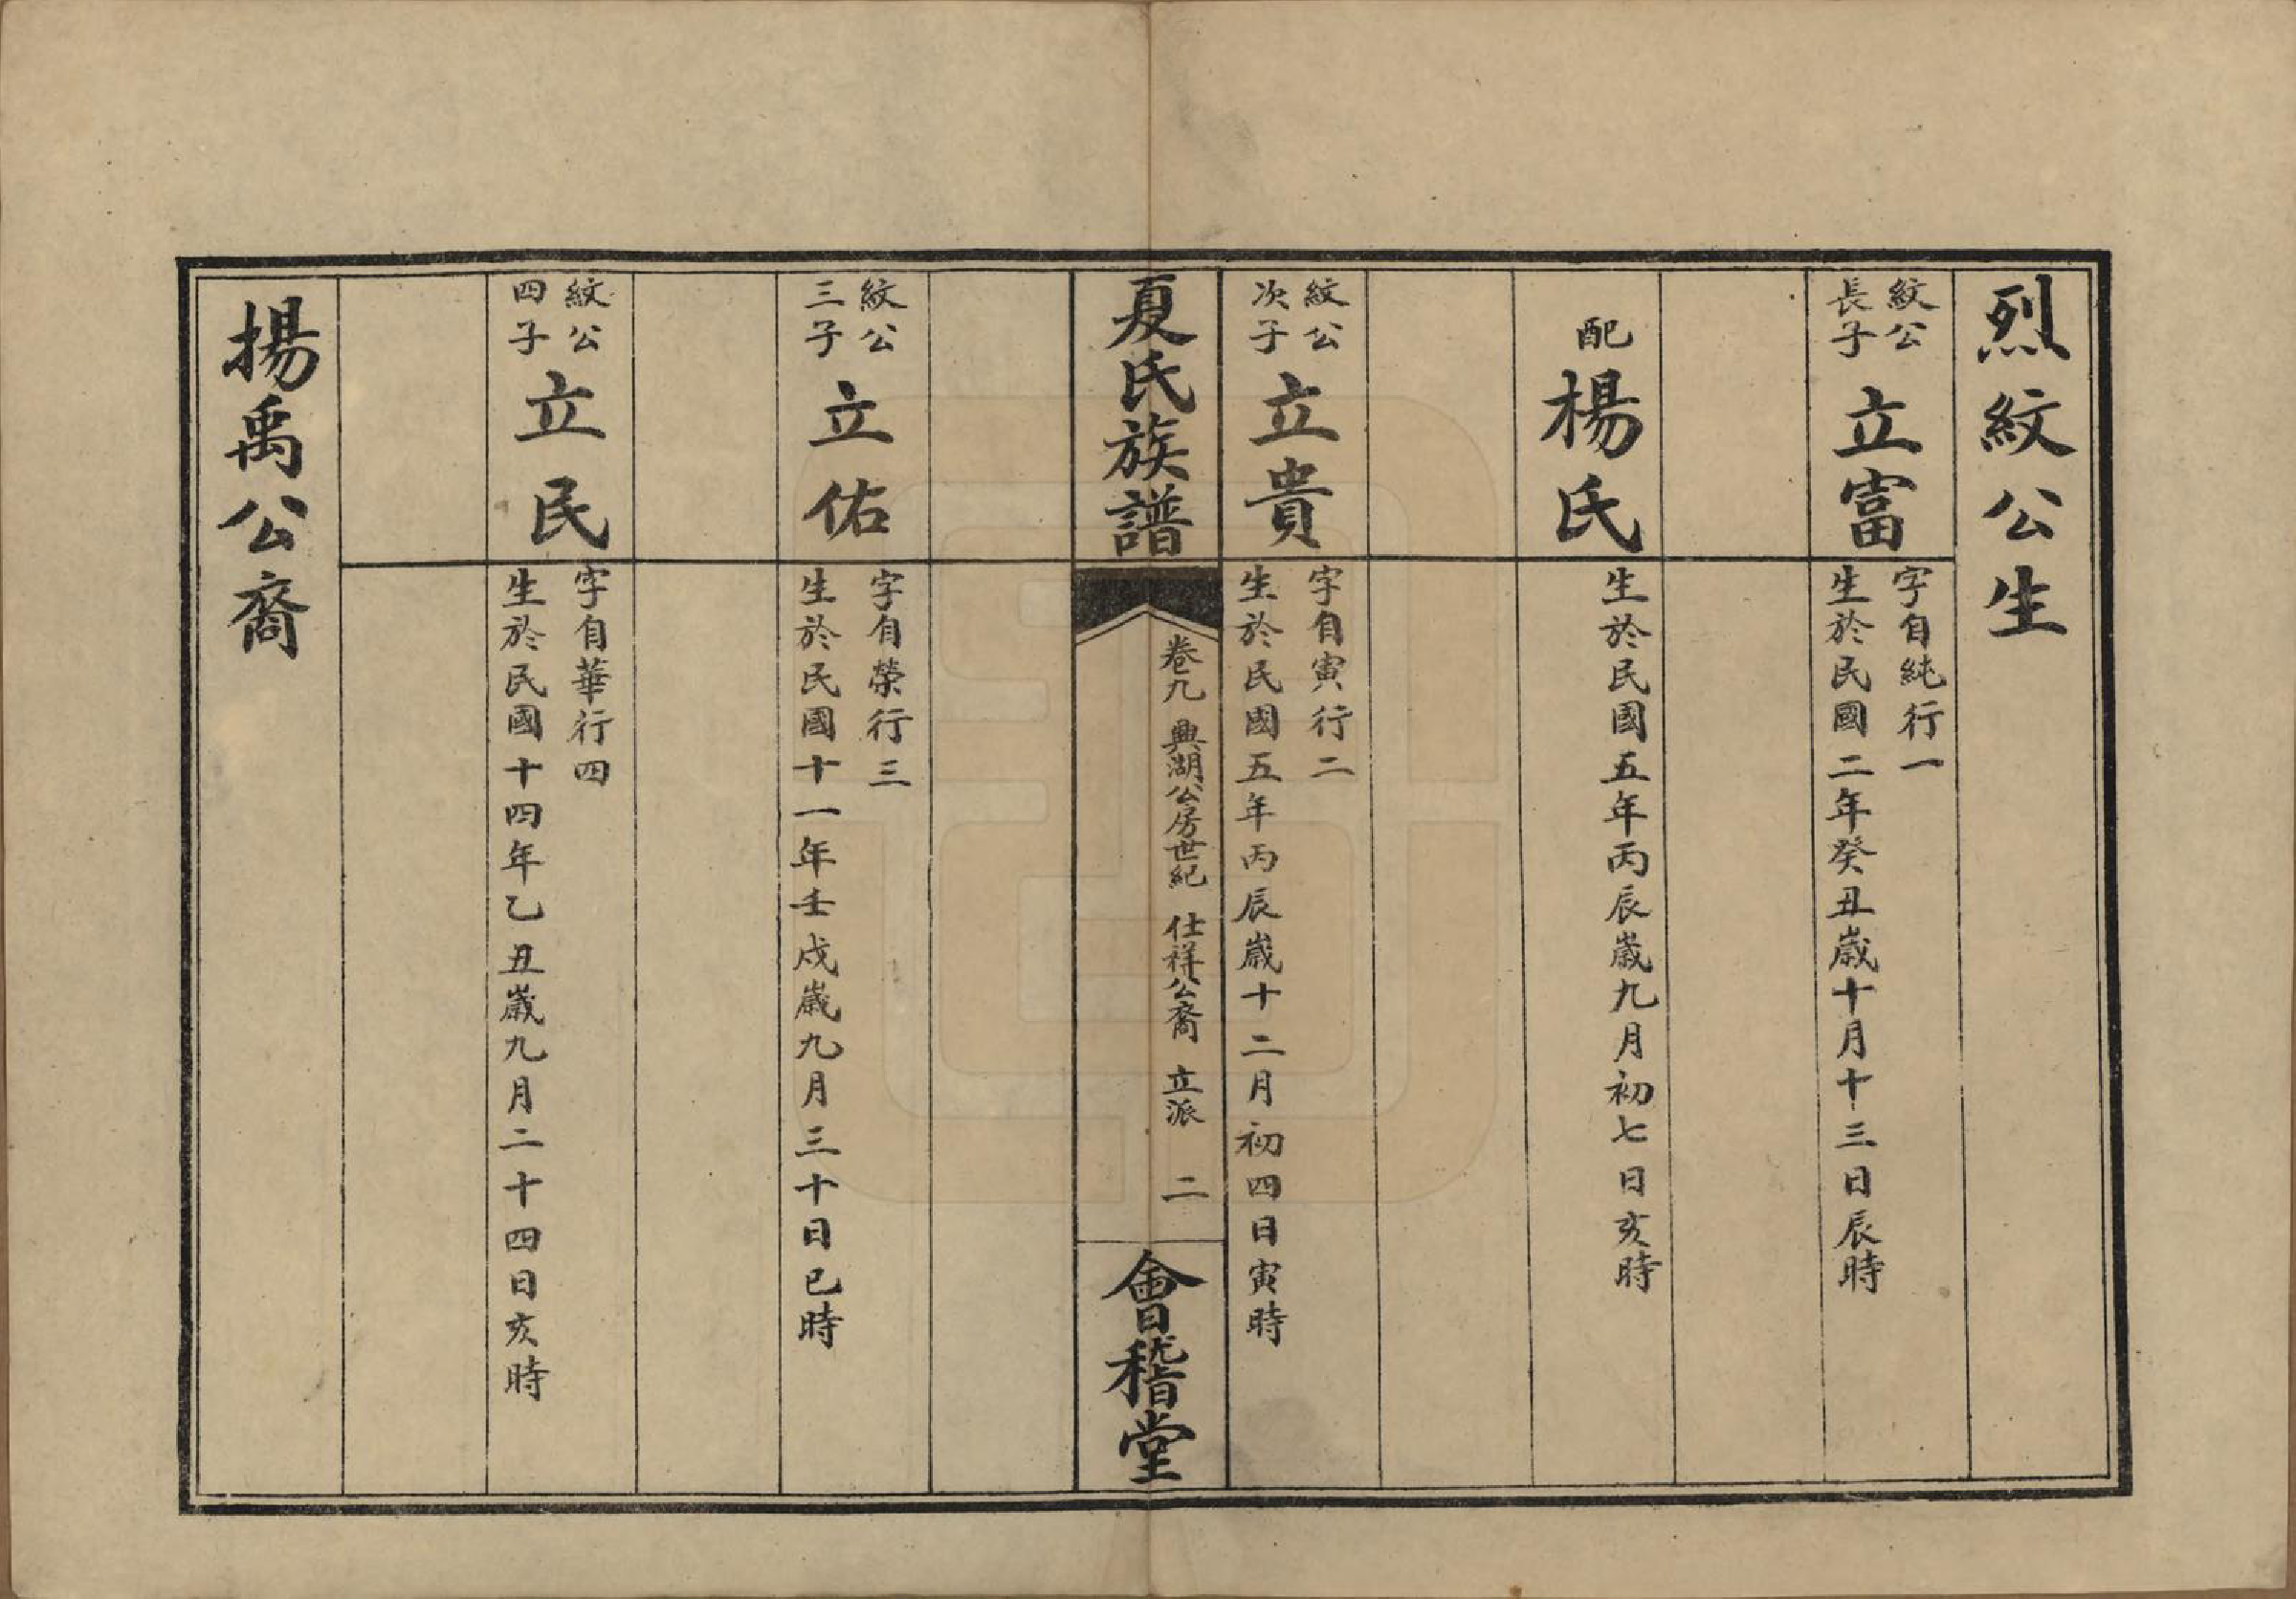 烈紋公生
紋公
長子
立富
字自純行一
生於民國二年癸丑歲十月十三日辰時
配
楊氏
生於民國五年丙辰歲九月初七日亥時
紋公
次子
立貴
字自寅行二
生於民國五年丙辰歲十二月初四日寅時
夏氏族譜
卷九 興湖公房世紀 仕祥公裔 立派 二
會稽堂
紋公
三子
立佑
字自榮行三
生於民國十一年壬戍歲九月三十日巳時
紋公
四子
立民
字自華行四
生於民國十四年乙丑歲九月二十四日亥時
揚禹公裔